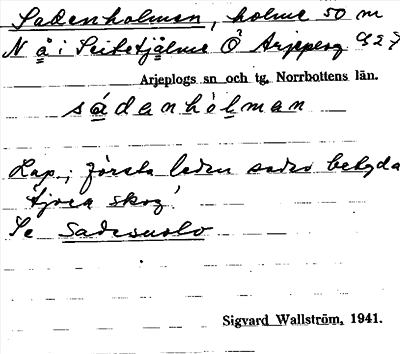 Sadenholmen, holme 50 m
N å i Seitetjålme Ö Arjeplog
Arjeplogs sn och tg, Norrbottens län.
sádanhòlman
Lap.; första leden sades betyda
'tjock skog'
Se Sadesuolo
Sigvard Wallström, 1941.